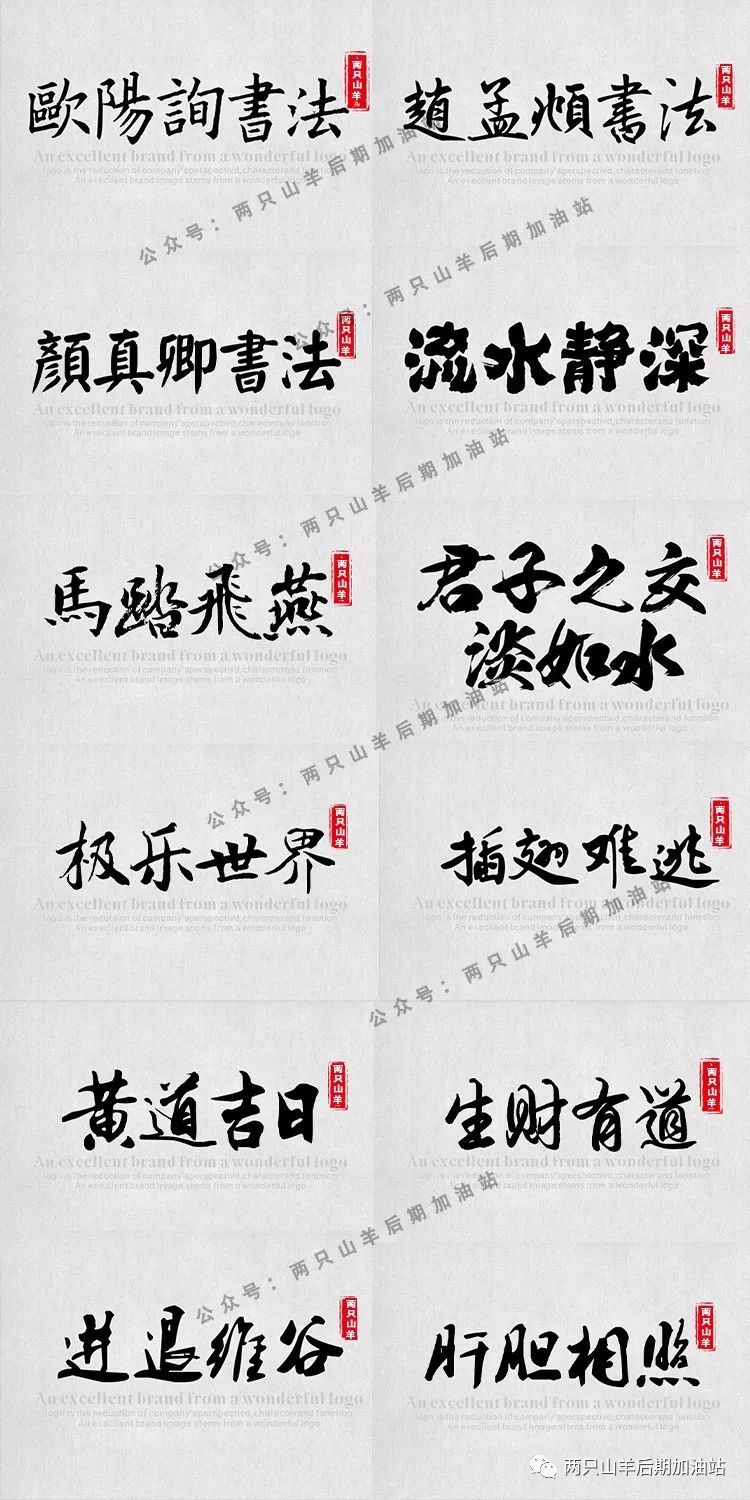 歐陽詢書法
两只山羊
An excellent brand from a wonderful logo
logo is the reduction of company'sperspectivd,characterand function
An execllent brand image stems from a wonderful logo
趙孟頫書法
两只山羊
An excellent brand from a wonderful logo
logo is the reduction of company'sperspectivd,characterand function
An execllent brand image stems from a wonderful logo
公众号：两只山羊后期加油站
顏真卿書法
两只山羊
An excellent brand from a wonderful logo
logo is the reduction of company'sperspectivd,characterand function
An execllent brand image stems from a wonderful logo
流水静深
两只山羊
An excellent brand from a wonderful logo
logo is the reduction of company'sperspectivd,characterand function
An execllent brand image stems from a wonderful logo
公众号：两只山羊后期加油站
馬踏飛燕
两只山羊
An excellent brand from a wonderful logo
logo is the reduction of company'sperspectivd,characterand function
An execllent brand image stems from a wonderful logo
君子之交
淡如水
两只山羊
An excellent brand from a wonderful logo
logo is the reduction of company'sperspectivd,characterand function
An execllent brand image stems from a wonderful logo
公众号：两只山羊后期加油站
极乐世界
两只山羊
An excellent brand from a wonderful logo
logo is the reduction of company'sperspectivd,characterand function
An execllent brand image stems from a wonderful logo
插翅难逃
两只山羊
An excellent brand from a wonderful logo
logo is the reduction of company'sperspectivd,characterand function
An execllent brand image stems from a wonderful logo
公众号：两只山羊后期加油站
公众号：两只山羊后期加油站
黄道吉日
两只山羊
An excellent brand from a wonderful logo
logo is the reduction of company'sperspectivd,characterand function
An execllent brand image stems from a wonderful logo
生财有道
两只山羊
An excellent brand from a wonderful logo
logo is the reduction of company'sperspectivd,characterand function
An execllent brand image stems from a wonderful logo
公众号：两只山羊后期加油站
进退维谷
两只山羊
An excellent brand from a wonderful logo
logo is the reduction of company'sperspectivd,characterand function
An execllent brand image stems from a wonderful logo
肝胆相照
两只山羊
An excellent brand from a wonderful logo
logo is the reduction of company'sperspectivd,characterand function
An execllent brand image stems from a wonderful logo
两只山羊后期加油站